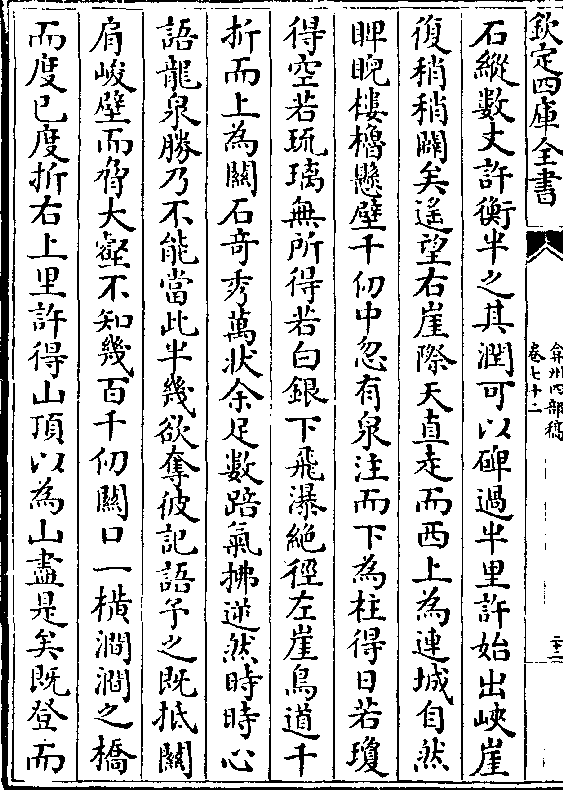 欽定四庫全書
弇州四部稿
卷七十二
二十二
石縱數丈許衡半之其濶可以碑過半里許始出峽崖
復稍稍闢矣遙望右崖際天直走而西上為連城自然
睥睨樓櫓懸壁千仞中忽有泉注而下為柱得日若瓊
得空若琉璃無所得若白銀下飛瀑絶徑左崖鳥道千
折而上為關石竒秀萬狀余足數踣氣拂逆然時時心
語龍泉勝乃不能當此半幾欲奪彼記語予之既抵關
肩峻壁而脅大壑不知幾百千仞關口一橫澗澗之橋
而度已度折右上里許得山頂以為山盡是矣既登而